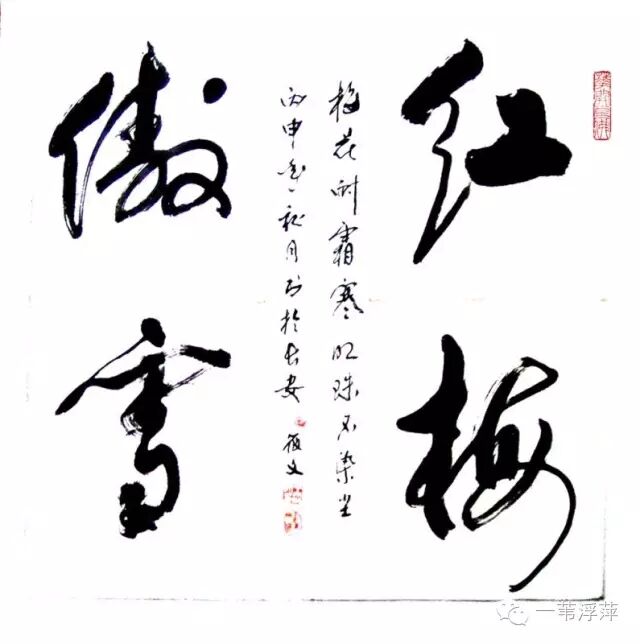 红梅
梅花耐霜寒明珠不染尘
丙申年秋月书於长安
傲雪
一苇浮萍